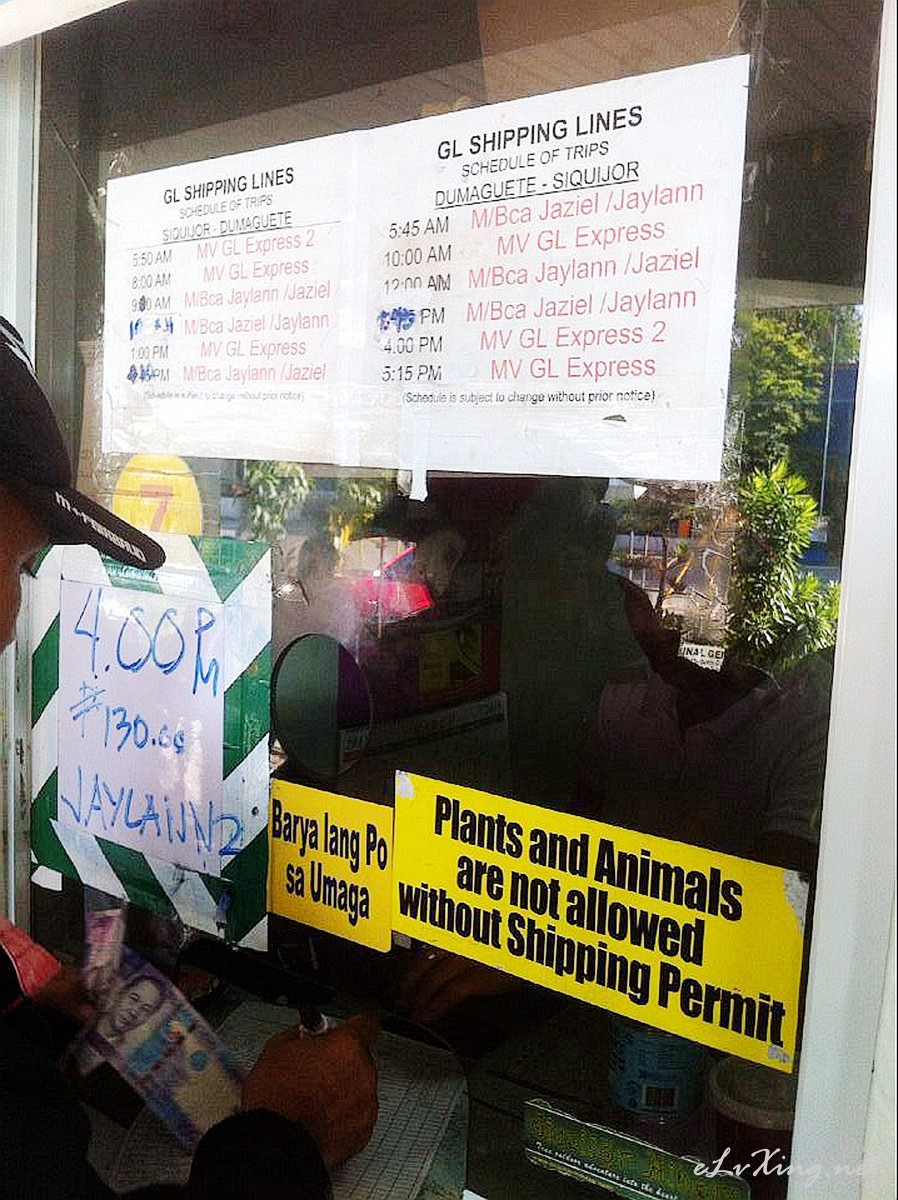 GL SHIPPING LINES
SCHEDULE OF TRIPS
SIQUIJOR - DUMAGUETE
5:50 AM MV GL Express 2
8:00 AM MV GL Express
AM M/Bca Jaylann /Jaziel
M/Bca Jaziel /Jaylann
1:00 PM MV GL Express
PM M/Bca Jaylann /Jaziel
(Schedule is subject to change without prior notice)
GL SHIPPING LINES
SCHEDULE OF TRIPS
DUMAGUETE - SIQUIJOR
5:45 AM M/Bca Jaziel /Jaylann
10:00 AM MV GL Express
12:00 AM M/Bca Jaylann /Jaziel
PM M/Bca Jaziel /Jaylann
4:00 PM MV GL Express 2
5:15 PM MV GL Express
(Schedule is subject to change without prior notice)
7
4.00 PM
₱130.00
JAYLANN 2
Barya lang Po
sa Umaga
Plants and Animals
are not allowed
without Shipping Permit
eLvXing.net